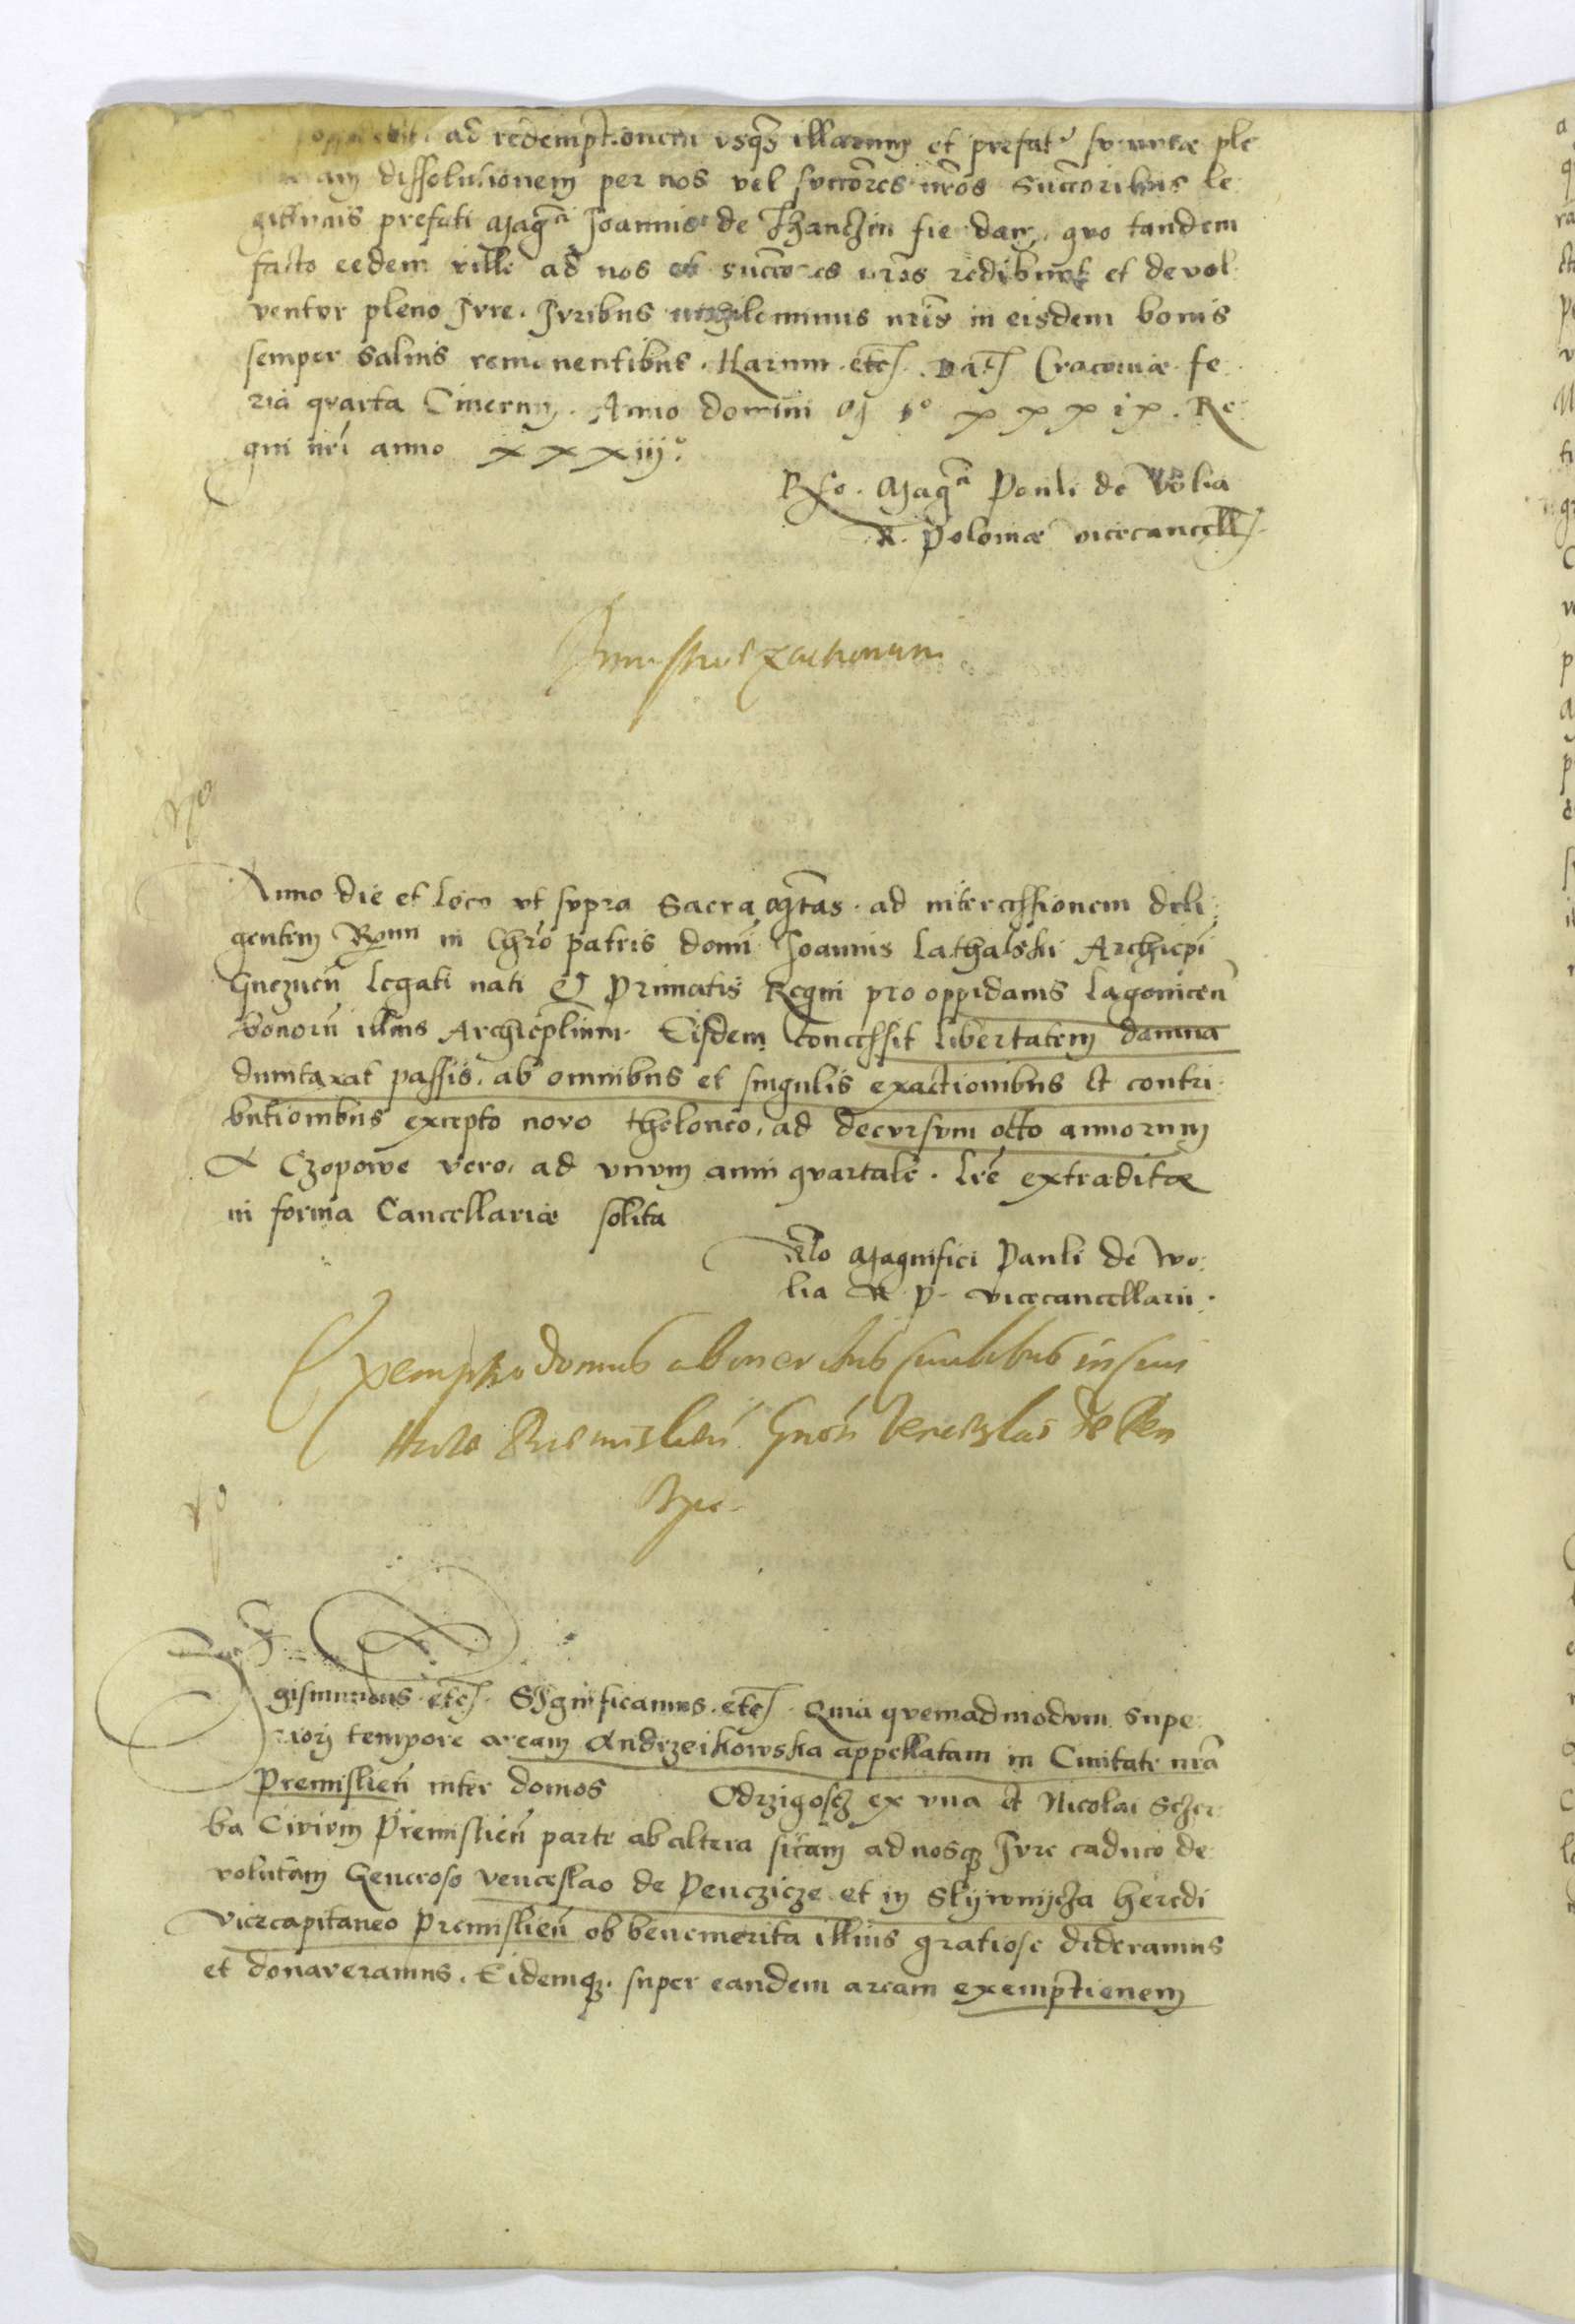 ad redemptionem vsqз illarum et prefatę summæ ple
dissolutionem per nos vel succōres nrōs succōribus le
gittimis prefati Mag^ci Joannis de Thanczin fiendam, quo tandem
facto eedem ville ad nos et succōres nrōs redibunt et devol
ventur pleno Jvre. Jvribus nihilominus nrīs in eisdem bonis
semper salvis remanentibus. Harum etc̄. Dat̄ Cracoviæ fe
ria quarta Cinerum. Anno domini M D° xxxix. Re
gni nrī anno xxxiij°.
Rſo. Mag^ci Pauli de Volia
R. Poloniæ vicecancell̄
Anno die et loco vt supra Sacra M̄tas ad intercessionem dili
gentem Rm̄i in Chrō patris domī Joannis Lathalski Archiepī
Gneznen̄ legati nati & Primatis Regni pro oppidanis Lagonicen̄
bonorū illius Archiep̄lium. Eisdem concessit libertatem damna
duntaxat passis, ab omnibus et singulis exactionibus et contri
butionibus excepto novo theloneo, ad decursum octo annorum
A Czopowe vero, ad vnum anni quartale. Lrē extraditæ
in forma Cancellariæ solita
Rlo Magnifici Pauli de Wo
lia R. P. vicecancellarii.
Exemptio domus ab oneribus civilibus in civi
tate Premislien̄ Gnosi Venceslai de Pen
gismundus etc̄. Significamus. etc̄. Quia quemadmodum supe
riorj tempore aream Andrzeikowska appellatam in Civitate nrā
Premislien̄ inter domos Odrzigoscz ex vna et Nicolai Scher
ba Civium Premislien̄ parte ab altera sitam ad nosqз Jvre caduco de
volutam Generoso Venceslao de Penczicze et in Slijwnijcza heredi
Vicecapitaneo Premislien̄ ob benemerita illius gratiose dederamus
et donaveramus. Eidemqз super eandem aream exemptionem